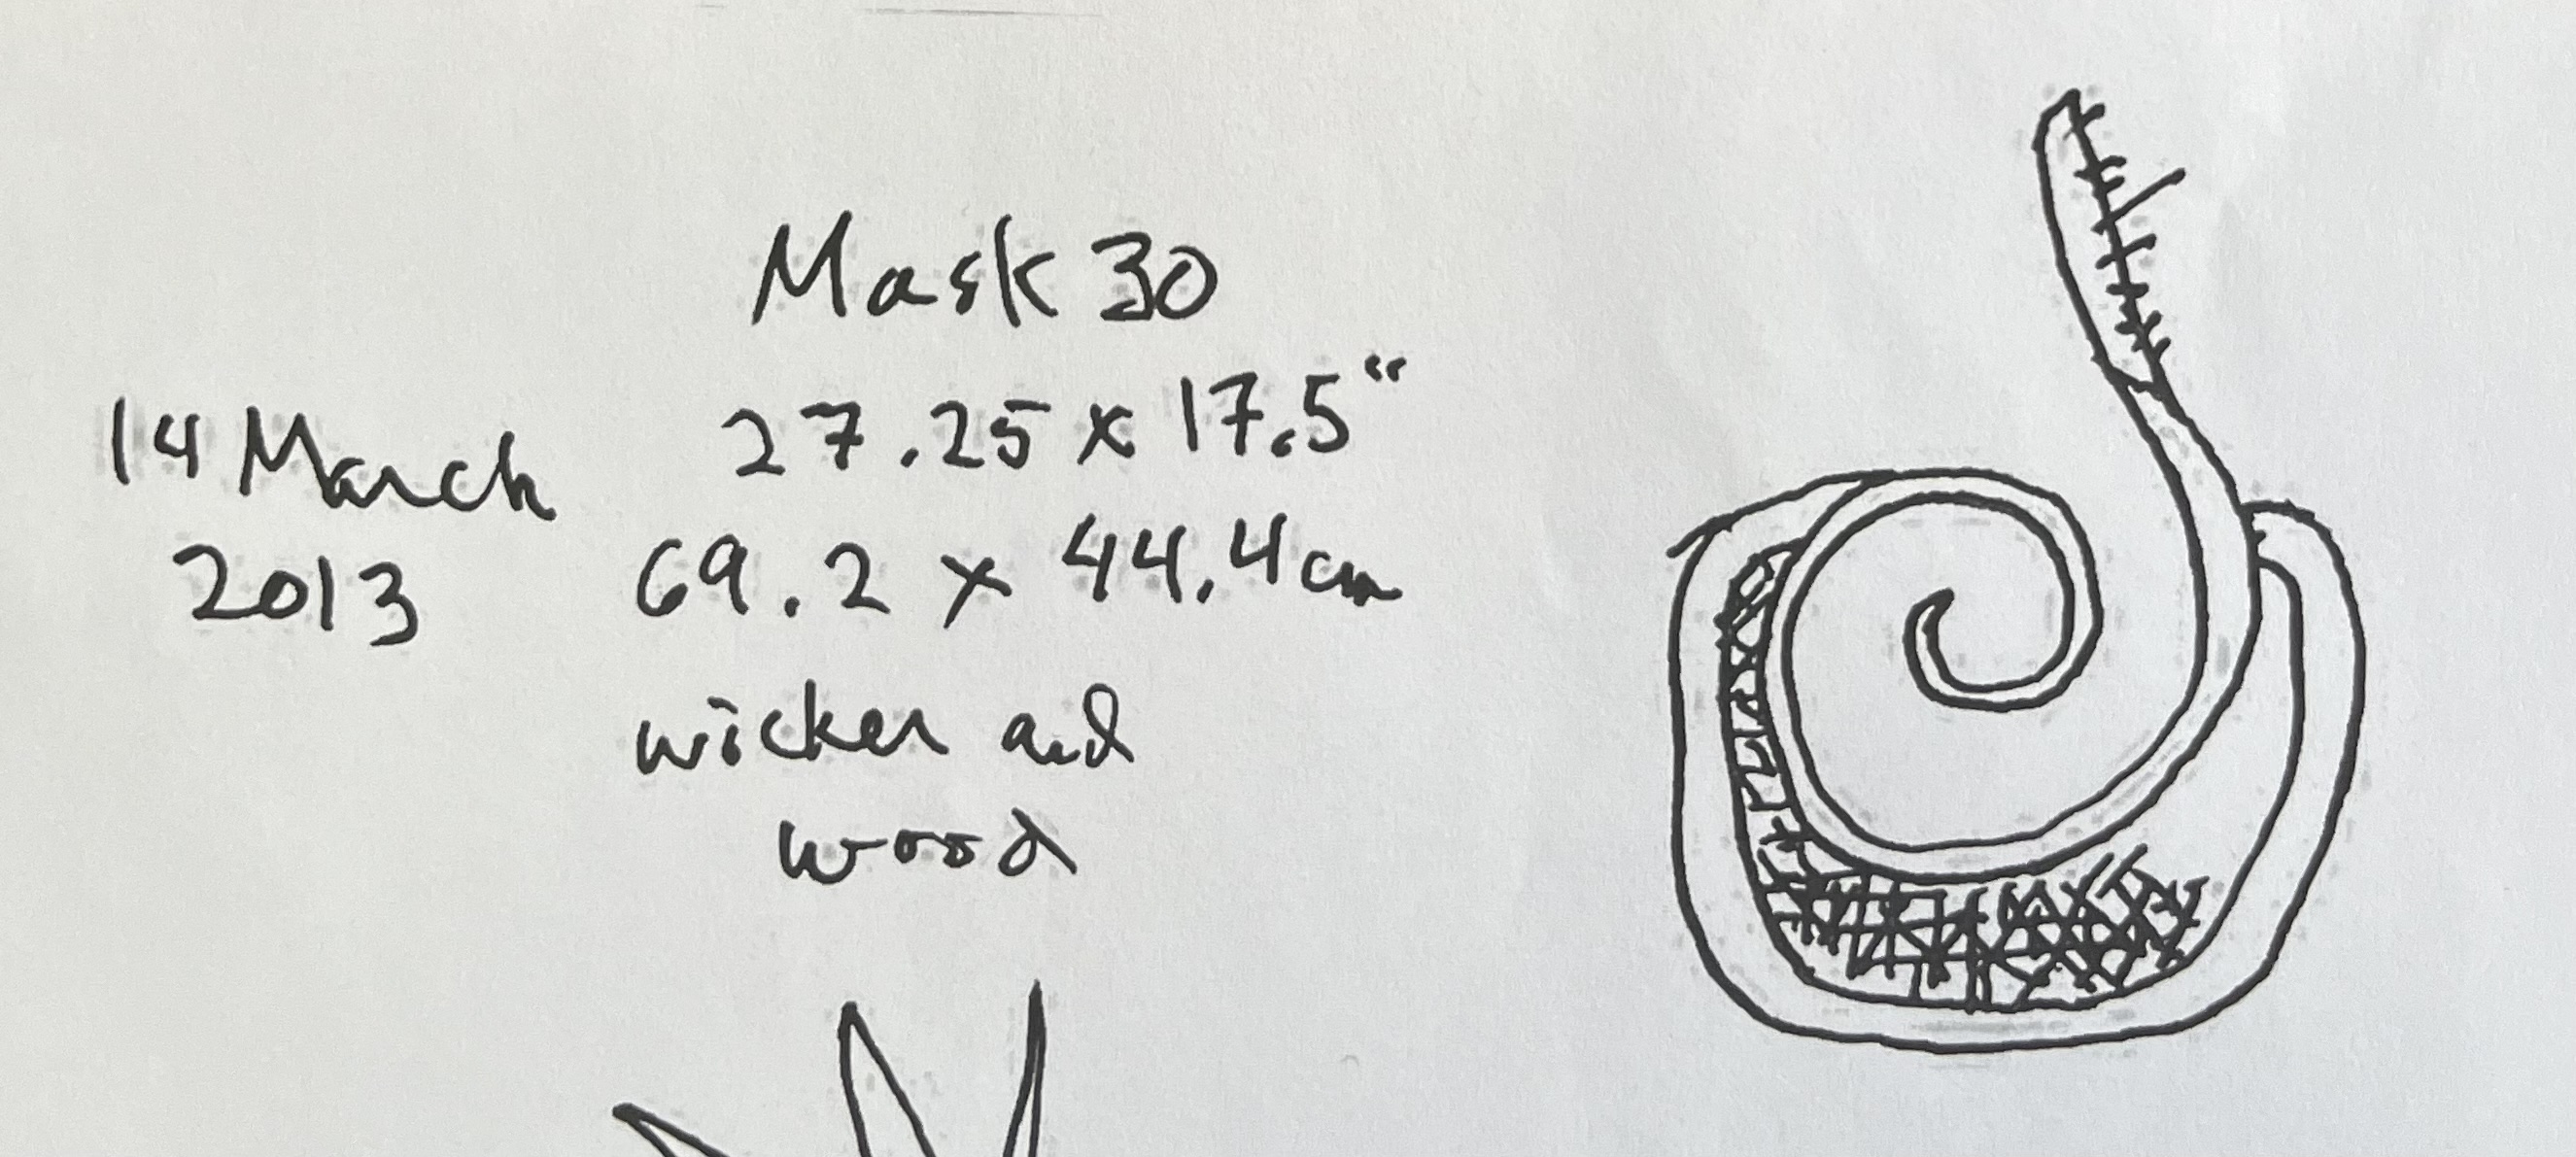 Mask 30
27.25 x 17.5"
69.2 x 44.4cm
wicker and
wood
14 March
2013